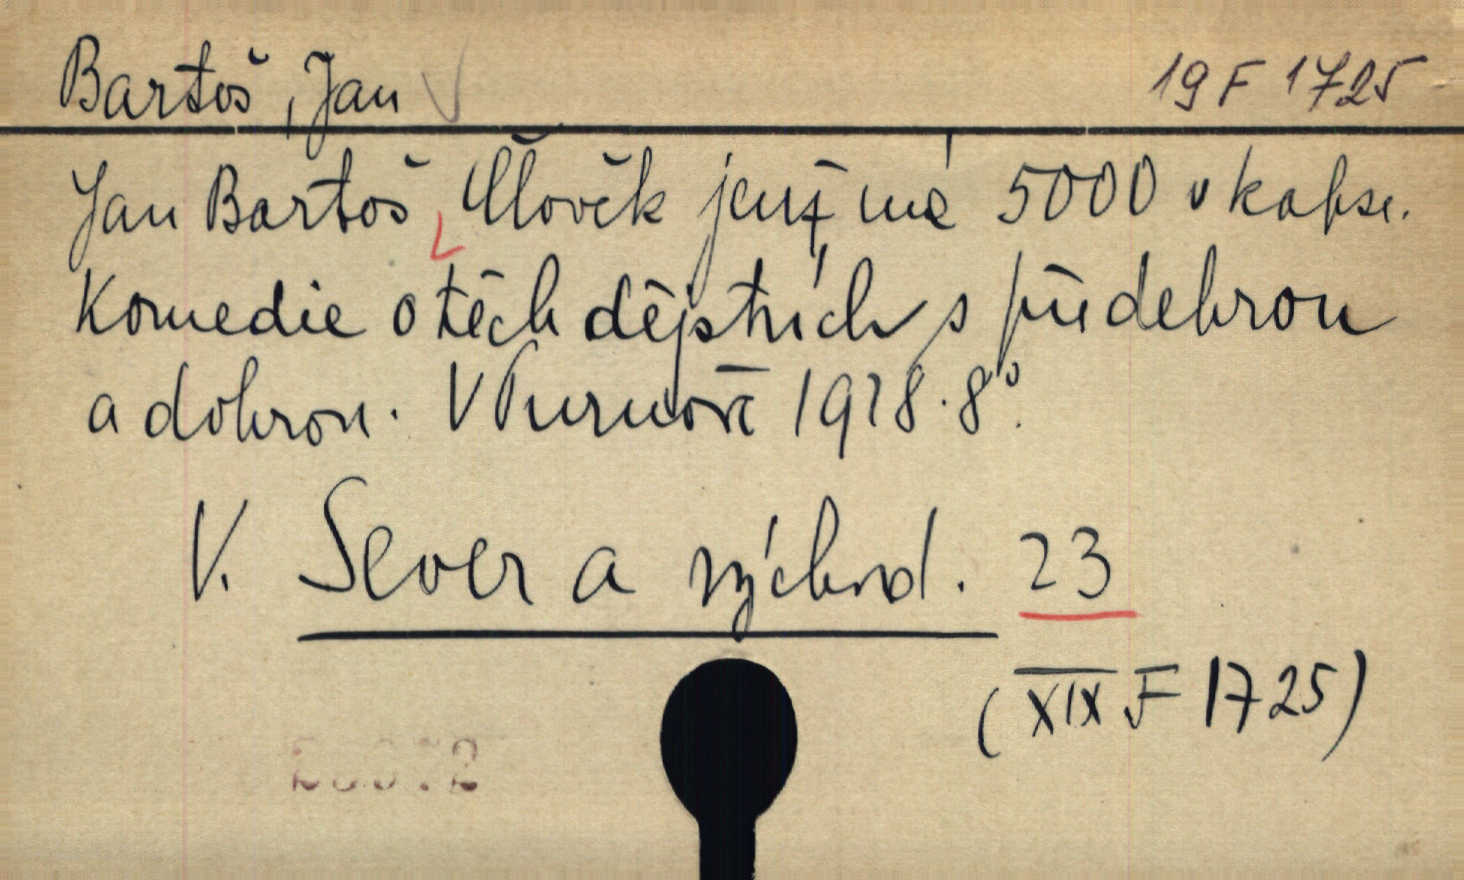 Bartoš, Jan 19 F 1725
Jan Bartoš, Člověk jenž má 5000 v kapse.
Komedie o těch dějstvích s předehrou
a dohrou. V Turnově 1918. 8°.
V. Sever a východ. 23
(XIX F 1725)